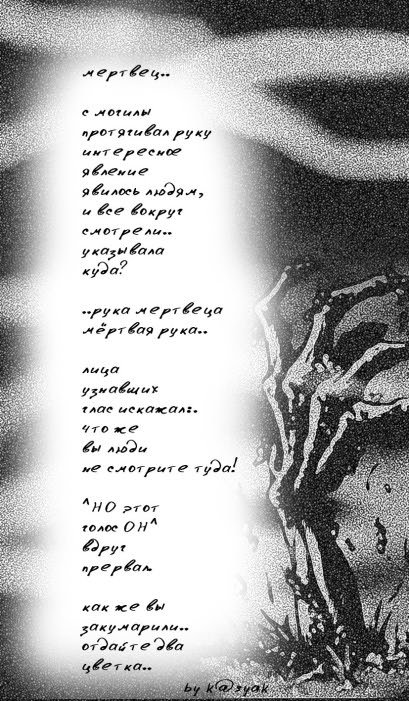 мертвец..
с могилы
протягивал руку
интересное
явление
явилось людям,
и все вокруг
смотрели..
указывала
куда?
..рука мертвеца
мёртвая рука..
лица
узнавших
глас искажал:.
что же
вы люди
не смотрите туда!
^НО этот
голос ОН^
вдруг
прервал.
как же вы
закумарили..
отдайте два
цветка..
by k@zyak